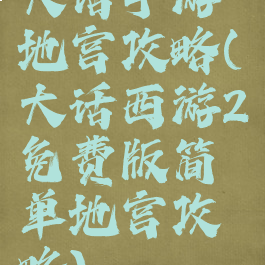 大话手游
地宫攻略(
大话西游2
免费版简
单地宫攻
略)